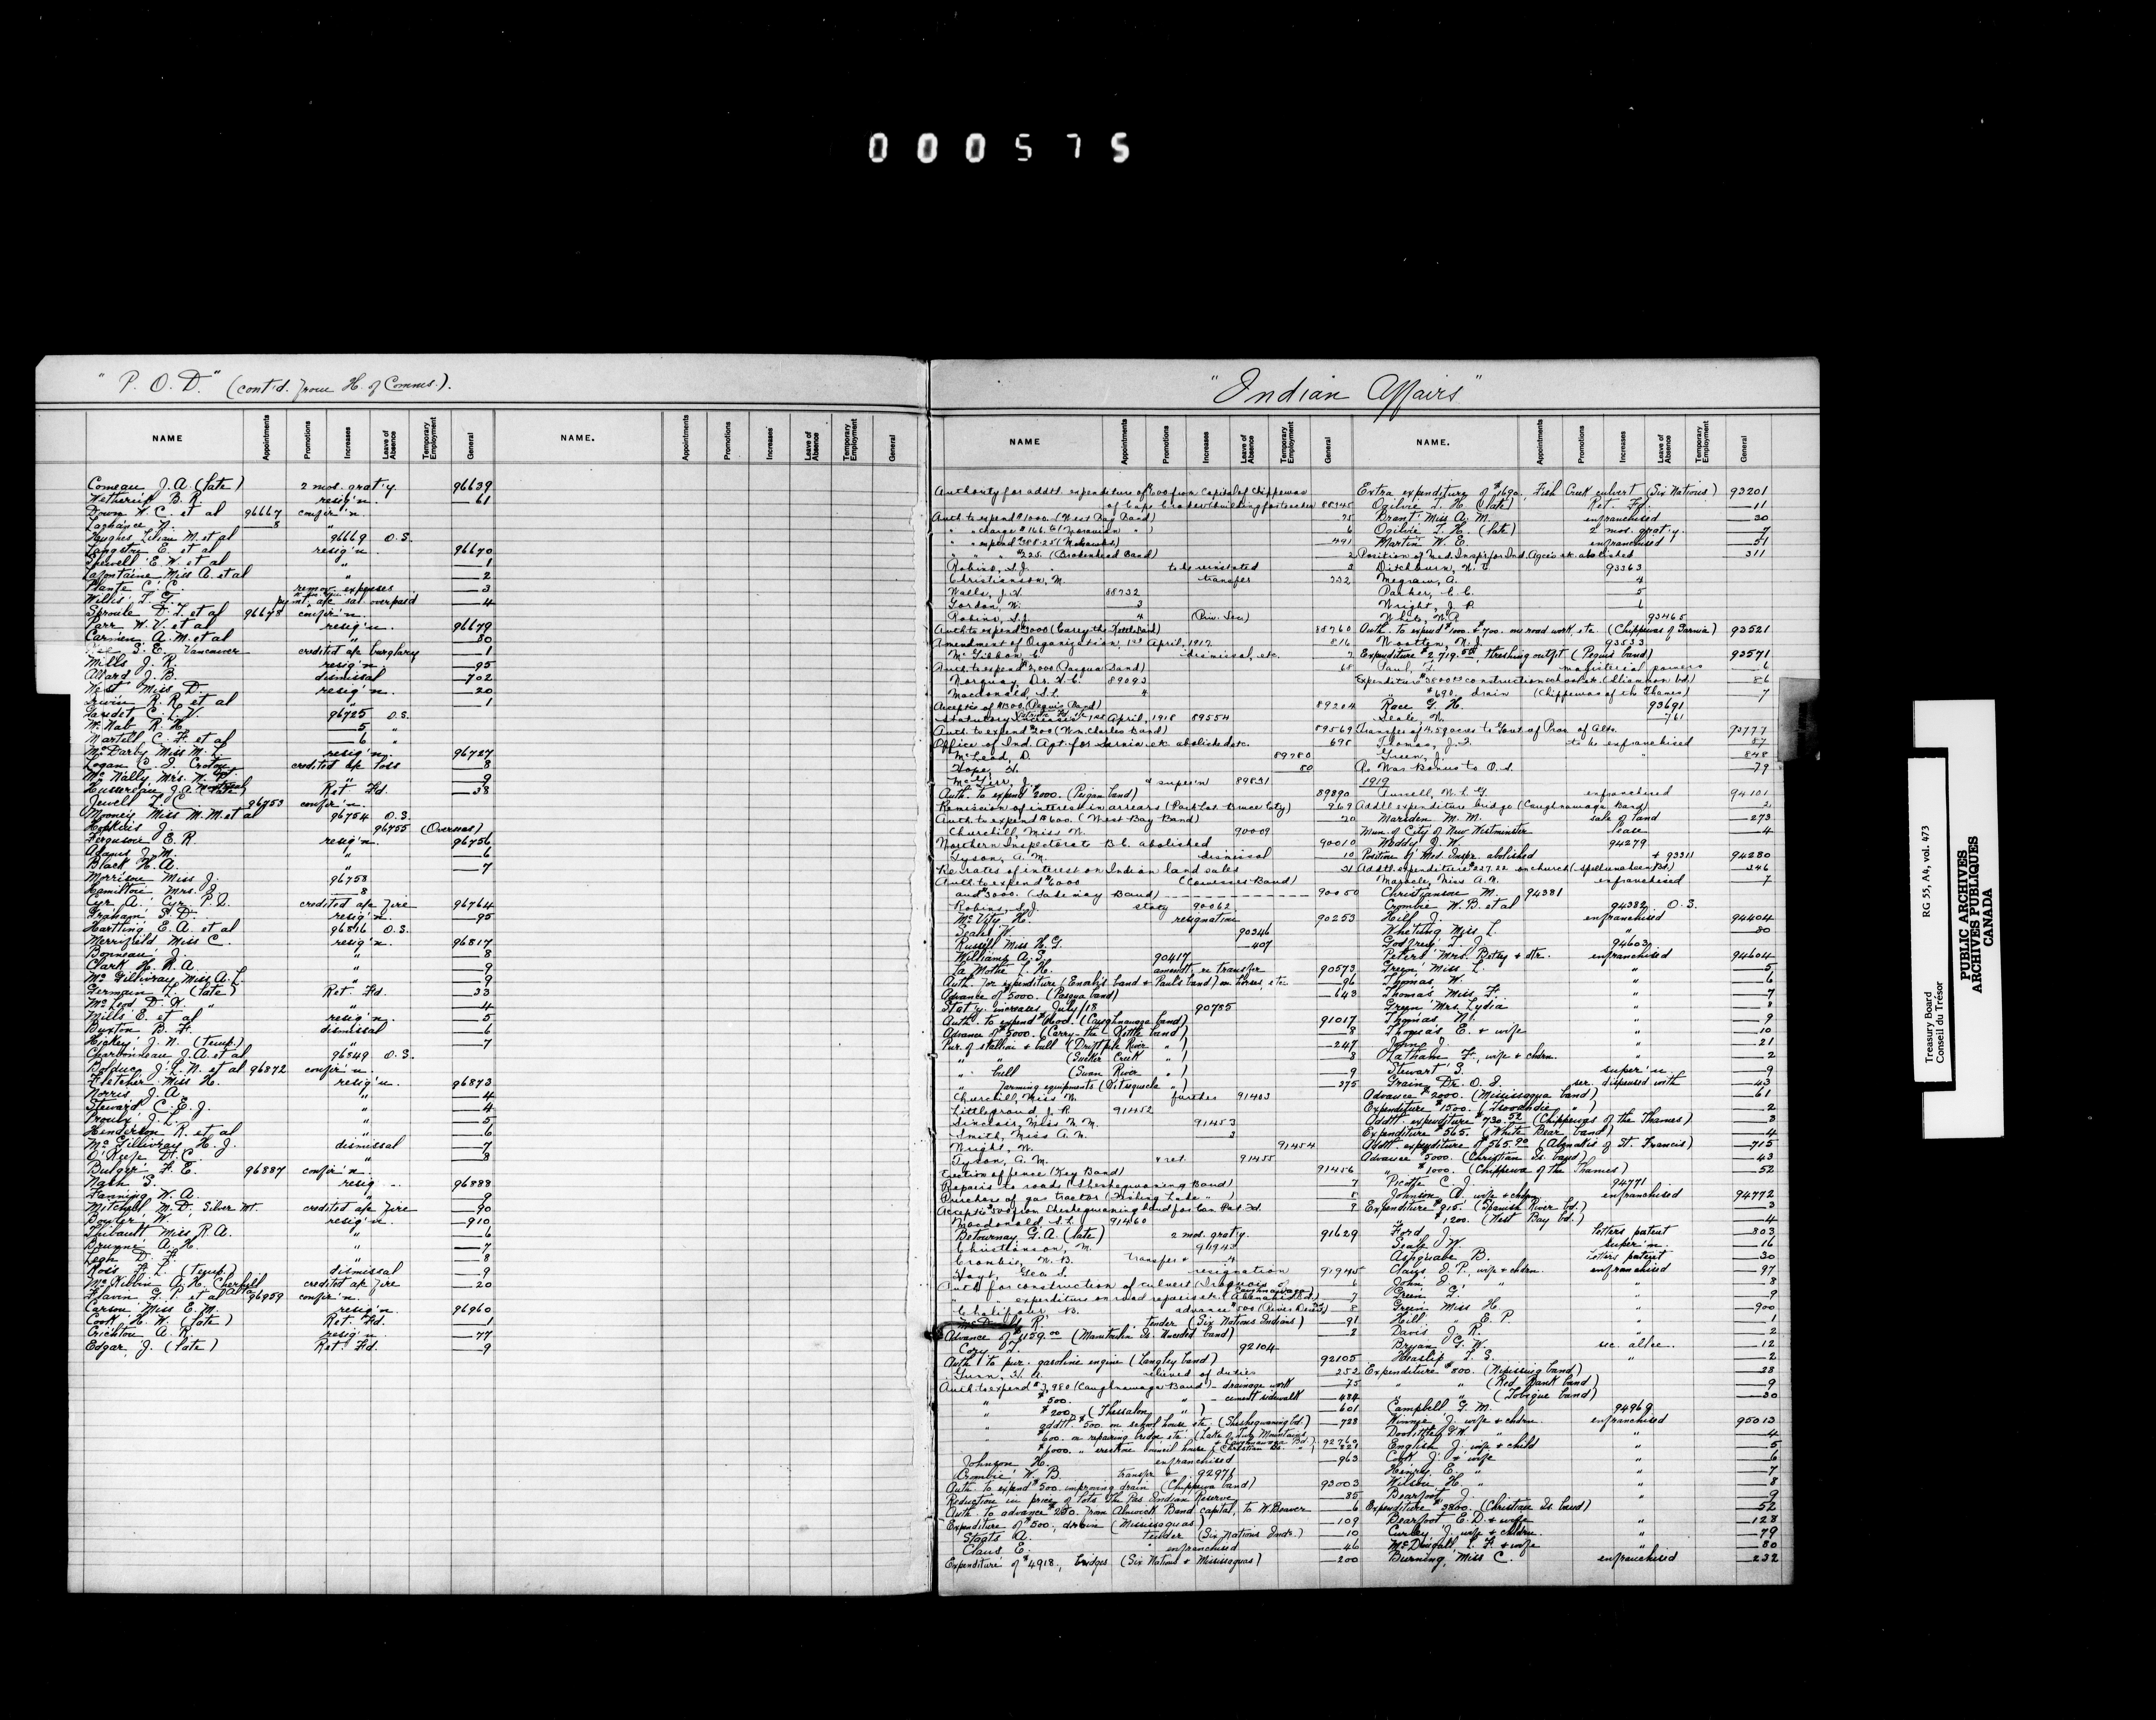 000575
"P. O. D." (cont'd. from H. of Comms.).
NAME Appointments Promotions Increases Leave of Absence Temporary Employment General NAME. Appointments Promotions Increases Leave of Absence Temporary Employment General
Comeau J. A. (late) 2 mos. grat'y. 96639
Wetherill B. R. resig'n. 61
Dixon W. C. et al 96667 confir'n.
8 "
Hughes Lilian M. et al 96669 O.S.
Langston E. et al resig'n. 96670
E. W. et al " 1
Lafontaine Miss A. et al " 2
Plante C. C. remov. expenses 3
Willis T. G. sal overpaid 4
Sproule D. T. et al 96678 confir'n.
Parr W. V. et al resig'n. 96679
Carmen A. M. et al " 80
S. E. Vancouver credited a/c burglary 1
Mills J. R. resig'n. 95
Allard J. B. dismissal 702
West Miss D. resig'n. 20
Irwin R. R. et al " 1
Gaudet C. L. V. 96725 O.S.
McNab R. H. 5 "
Martell C. F. et al 6 "
McDarby Miss M. L. resig'n. 96727
Logan C. J. Croton credited a/c loss 8
McNally Mrs. N. " 9
Hussereau J. A. Ret Fd. 38
Jewell L. C. 96753 confir'n.
Mooney Miss M. M. et al 96754 O.S.
Hopkins J. 96755 (Overseas)
Ferguson E. R. resig'n. 96756
Adams J. M. " 6
Black H. A. " 7
Morrison Miss J. 96758
Hamilton Mrs. J. 8
Cyr A. Cyr P. Q. credited a/c fire 96764
Graham S. D. resig'n. 95
Hartting E. A. et al 96816 O.S.
Merrifield Miss C. resig'n. 96817
Bonneau J. " 8
Clark H. R. A. " 9
McGillivray Miss A. L. " 9
Germain L. (late) Ret Fd. 33
McLeod D. K. " " 4
Mills E. et al resig'n. 5
Buxton B. F. dismissal 6
Hickey J. N. (temp.) " 7
Charbonneau J. A. et al 96849 O.S.
Bolduc J. L. N. et al 96872 confir'n.
Fletcher Miss H. resig'n. 96873
Norris J. A. " 4
Steward C. E. J. " 4
Proulx J. L. " 5
Henderson R. et al " 6
McGillivray H. J. dismissal 7
O'Keefe D. C. " 8
Bulger F. E. 96887 confir'n.
Nash S. resig 96888
Fanning W. A. " 9
Mitchell M. D. Silver Mt. credited a/c fire 90
Bowler W. resig'n. 910
Thibault Miss R. A. " 6
Brunne A. H. " 7
Legh D. F. " 8
Ross F. L. (temp.) dismissal 9
McKibbin A. H. Cherhill Alta. credited a/c fire 20
Flavin G. P. et al 96959 confir'n.
Carson Miss E. M. resig'n. 96960
Cook H. W. (late) Ret. Fd. 1
Crichton A. R. resig'n. 77
Edgar J. (late) Ret. Fd. 9
"Indian Affairs"
NAME Appointments Promotions Increases Leave of Absence Temporary Employment General NAME. Appointments Promotions Increases Leave of Absence Temporary Employment General
Authority for addtl. expenditure of $600 from Capital of Chippewas
of Cape Croker building for teacher 88145
Auth. to expend $1000. (West Bay Band) 75
" " charge $166. to (Moravian " ) 6
" " expend $388.25 (Mohawks) 491
" " " $225. (Brokenhead Band) 2
Robins, S. J. to be reinstated 3
Christianson, M. transfer 732
Walls, J. A. 88732
Gordon, W. 3
Robins, S. J. 4 (Priv. Sec)
Auth. to expend $3000 (Carry the Kettle Band) 88760
Amendment of Organization, 1st April, 1917 816
McGibbon, C. dismissal, etc. 7
Auth. to expend $3,000 (Pasqua Band) 68
Norquay Dr. H. C. 89093
Macdonald, S. L. 4
Accept'ce of $1300. (Peguis Band) 89204
Statutory Increases 1st April, 1918 89554
Auth. to expend $200 (Wm. Charles Band) 89569
Office of Ind. Agt. for Sarnia etc. abolished etc. 698
McLeod, D. 89780
Hope, H. 80
McGirr, J. " super'n 89831
Auth. to expend $2000. (Peigan band) 89890
Remission of interest in arrears (Park Lot Bruce City) 969
Auth. to expend $600. (West Bay Band) 70
Churchill, Miss N. 90009
Northern Inspectorate B.C. abolished 90010
Tyson, A. M. dismissal 10
Re rates of interest on Indian land sales 31
Auth. to expend $6000 (Cowesses Band)
and $3000. (Sakimay Band) 90050
Robins, S. J. staty 90062
McVity H. resignation 90253
Seale W. 90346
Russell Miss H. G. 407
Williams A. S. 90417
La Mothe L. H. amendt. re transfer 90573
Auth. for expenditure (Enoch's band & Paul's band) on horses, etc. 96
Advance of $5000. (Pasqua band) 643
Stat'y. increases July/18 90785
Auth. to expend $6000. (Caughnawaga band) 91017
Advance of $5000. (Carry-the-Kettle band) 8
Pur. of stallion & bull (Driftpile River " ) 247
" " (Sucker Creek " ) 8
" bull (Swan River " ) 9
" farming equipments ( " ) 375
Churchill, Miss N. further 91403
Littleproud J. R. 91452
Sinclair, Miss N. M. 91453
Smith, Miss A. N. 3
Wright, W. 91454
Tyson, A. M. & ret. 91455
Erection of fence (Key Band) 91456
Repairs to roads (Sheshegwaning Band) 7
Purchase of gas tractor (Fishing Lake " ) 8
Accept'ce $500 from Sheshegwaning band for Can. Pat. Fd. 9
Macdonald S. L. 91460
Betournay G. A. (late) 2 mos. grat'y. 91629
Christianson, M. 91943
Crombie, W. B. transfer & "
Hoyt, Geo. S. resignation 91945
Auth. for construction of culvert (Iroquois of Caughnawaga) 6
" expenditure on road repairs etc. (Abenakis Bd.) 7
Chalifour B. advance $500 (River Desert) 8
R. tender (Six Nations Indians) 91
Advance of $1129.00 (Manitoulin Is. Unceded band) 2
Cory T. 92104
Auth. to pur. gasoline engine (Langley band) 92105
Gunn, H. A. relieved of duties 252
Auth. to expend $3,980 (Caughnawaga Band) - drainage work 75
" $500. " " - cement sidewalk 484
" $200. (Thessalon " ) 601
" addtl. $500. on school house etc. (Sheshegwaning bd.) 728
" $600. on repairing bridge etc. (Lake of Two Mountains & Caughnawaga Bd.) 92760
" $6000. " erection council house (Christian Is. " ) 821
Johnson H. enfranchised 963
Crombie W. B. transfr & 92971
Auth. to expend $500. improving drain (Chippewa band) 93003
Reduction in price of lots The Pas Indian Reserve 85
Auth. to advance $250. from Alnwick Band capital, to W. Beaver 6
Expenditure of $500., (Mississaguas) 109
Staats A. tender (Six Nations Inds.) 10
Claus E. enfranchised 46
Expenditure of $4918, bridges (Six Nations & Mississaguas) 200
Extra expenditure of $1690. Fish Creek culvert (Six Nations) 93201
Ogilvie T. H. (late) Ret. Fd. 11
Brant Miss A. M. enfranchised 30
Ogilvie T. H. (late) 2 mos. grat'y. 7
Martin W. E. enfranchised 51
Position of Med. Insp'r for Ind. Agcies etc. abolished 311
Ditchburn, W. E. 93363
Megraw, A. 4
Parker, C. C. 5
Wright, J. R. 6
White, W. R. 93465
Auth. to expend $1000. & $700. on road work, etc. (Chippewas of Sarnia) 93521
Wootten, N. J. 93533
Expenditure $2,719.50, threshing outfit (Peguis band) 93571
Paul, T. magisterial powers 6
Expenditure $3800 construction school etc. (Sliammon bd.) 86
" $690. drain (Chippewas of the Thames) 7
Race G. H. 93691
Seale, W. 761
Transfer of 14.59 acres to Govt. of Prov. of Alta. 93777
Thomas, J. to be enfranchised 87
Green, J. " 848
Re War Bonus to O.S. 79
1919
Tunnell, W. L. G. enfranchised 94101
Addtl. expenditure bridge (Caughnawaga Band) 2
Marsden M. M. sale of land 273
Mun. of City of New Westminster lease 4
Waddy J. W. 94279
Position of Med. Inspr. abolished & 93311 94280
Addtl. expenditure $227.22 on church (Spellumcheen Bd.) 346
Maracle, Miss A. M. enfranchised 7
Christianson M. 94381
Crombie W. B. et al 94382 O.S.
Hill J. enfranchised 94404
Whetung Miss L. " 80
Godfrey T. J. 94603
Peters Mrs. Betsy & dtr. enfranchised 94604
Green, Miss L. " 5
Thomas W. " 6
Thomas Miss F. " 7
Green Mrs. Lydia " 8
Thomas N. " 9
Thomas E. & wife " 10
John J. " 21
Latham F., wife & chdrn. " 2
Stewart S. super'n 9
Grain, Dr. O. J. ser. dispensed with 43
Advance $2000. (Mississagua band) 61
Expenditure $1500. ( " ) 2
Addtl. expenditure $730.52 (Chippewas of the Thames) 3
Expenditure $565. (White Bear band) 4
Addtl. expenditure $565.90 (Abenakis of St. Francis) 715
Advance $5000. (Christian Is. band) 43
" $1000. (Chippewa of the Thames) 52
Picotte C. J. 94771
Johnson A. wife & chdrn enfranchised 94772
Expenditure $915. (Spanish River bd.) 3
" $1200. (West Bay bd.) 4
Ford, J. letters patent 803
Seale W. super'n. 16
Ashquabe B. letters patent 30
Claus J. P., wife & chdrn. enfranchised 97
John J. " " 8
Green G. " 9
Green Miss H. " 900
Hill " E. P. " 1
Davis J. R. " 2
Bryan G. W. sec. allce. 12
Heaslip L. S. " 2
Expenditure $800. (Nipissing band) 28
" " (Red Bank band) 9
" " (Tobique band) 30
Campbell G. M. 94969
Winnie J., wife & chdrn. enfranchised 95013
Doolittle G. W. " " 4
English J., wife & child " 5
Cook J. & wife " 6
Henry E. " " 7
Wilson H. " " 8
Bearfoot J. " 9
Expenditure $3800. (Christian Is. band) 52
Bearfoot E. D. & wife " 128
Curley J., wife & chdrn. " 79
McDougall, L. F. & wife " 80
Burning, Miss C. enfranchised 232
Treasury Board RG 55, A4, vol. 473
Conseil du Trésor
PUBLIC ARCHIVES
ARCHIVES PUBLIQUES
CANADA